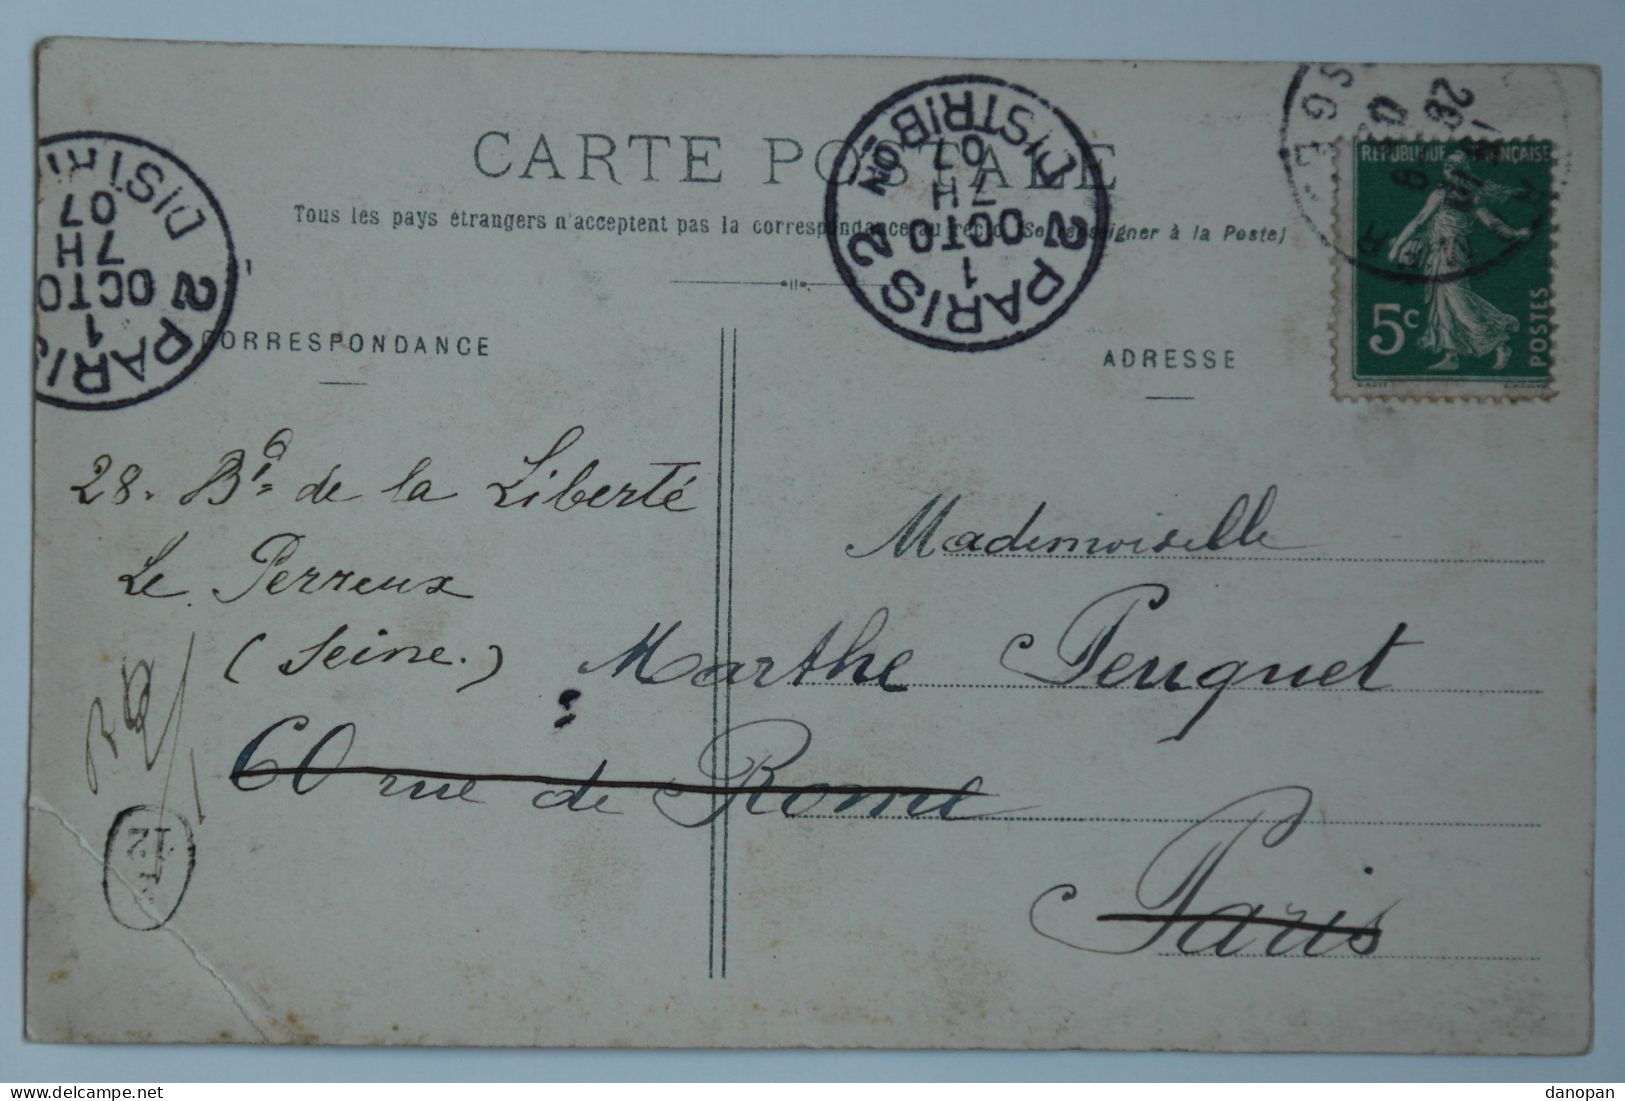 CARTE POSTALE
Tous les pays étrangers n'acceptent pas la correspondance au recto (Se renseigner à la Poste)
CORRESPONDANCE
ADRESSE
RÉPUBLIQUE FRANÇAISE
5c
POSTES
PARIS 2
DISTRIBON
1
OCTO
7H
07
PARIS 2
DISTRI
1
OCTO
7H
07
28. Bd de la Liberté
Le Perreux
(Seine.)
Mademoiselle
Marthe Peuguet
60 rue de Rome
Paris
12
danopan